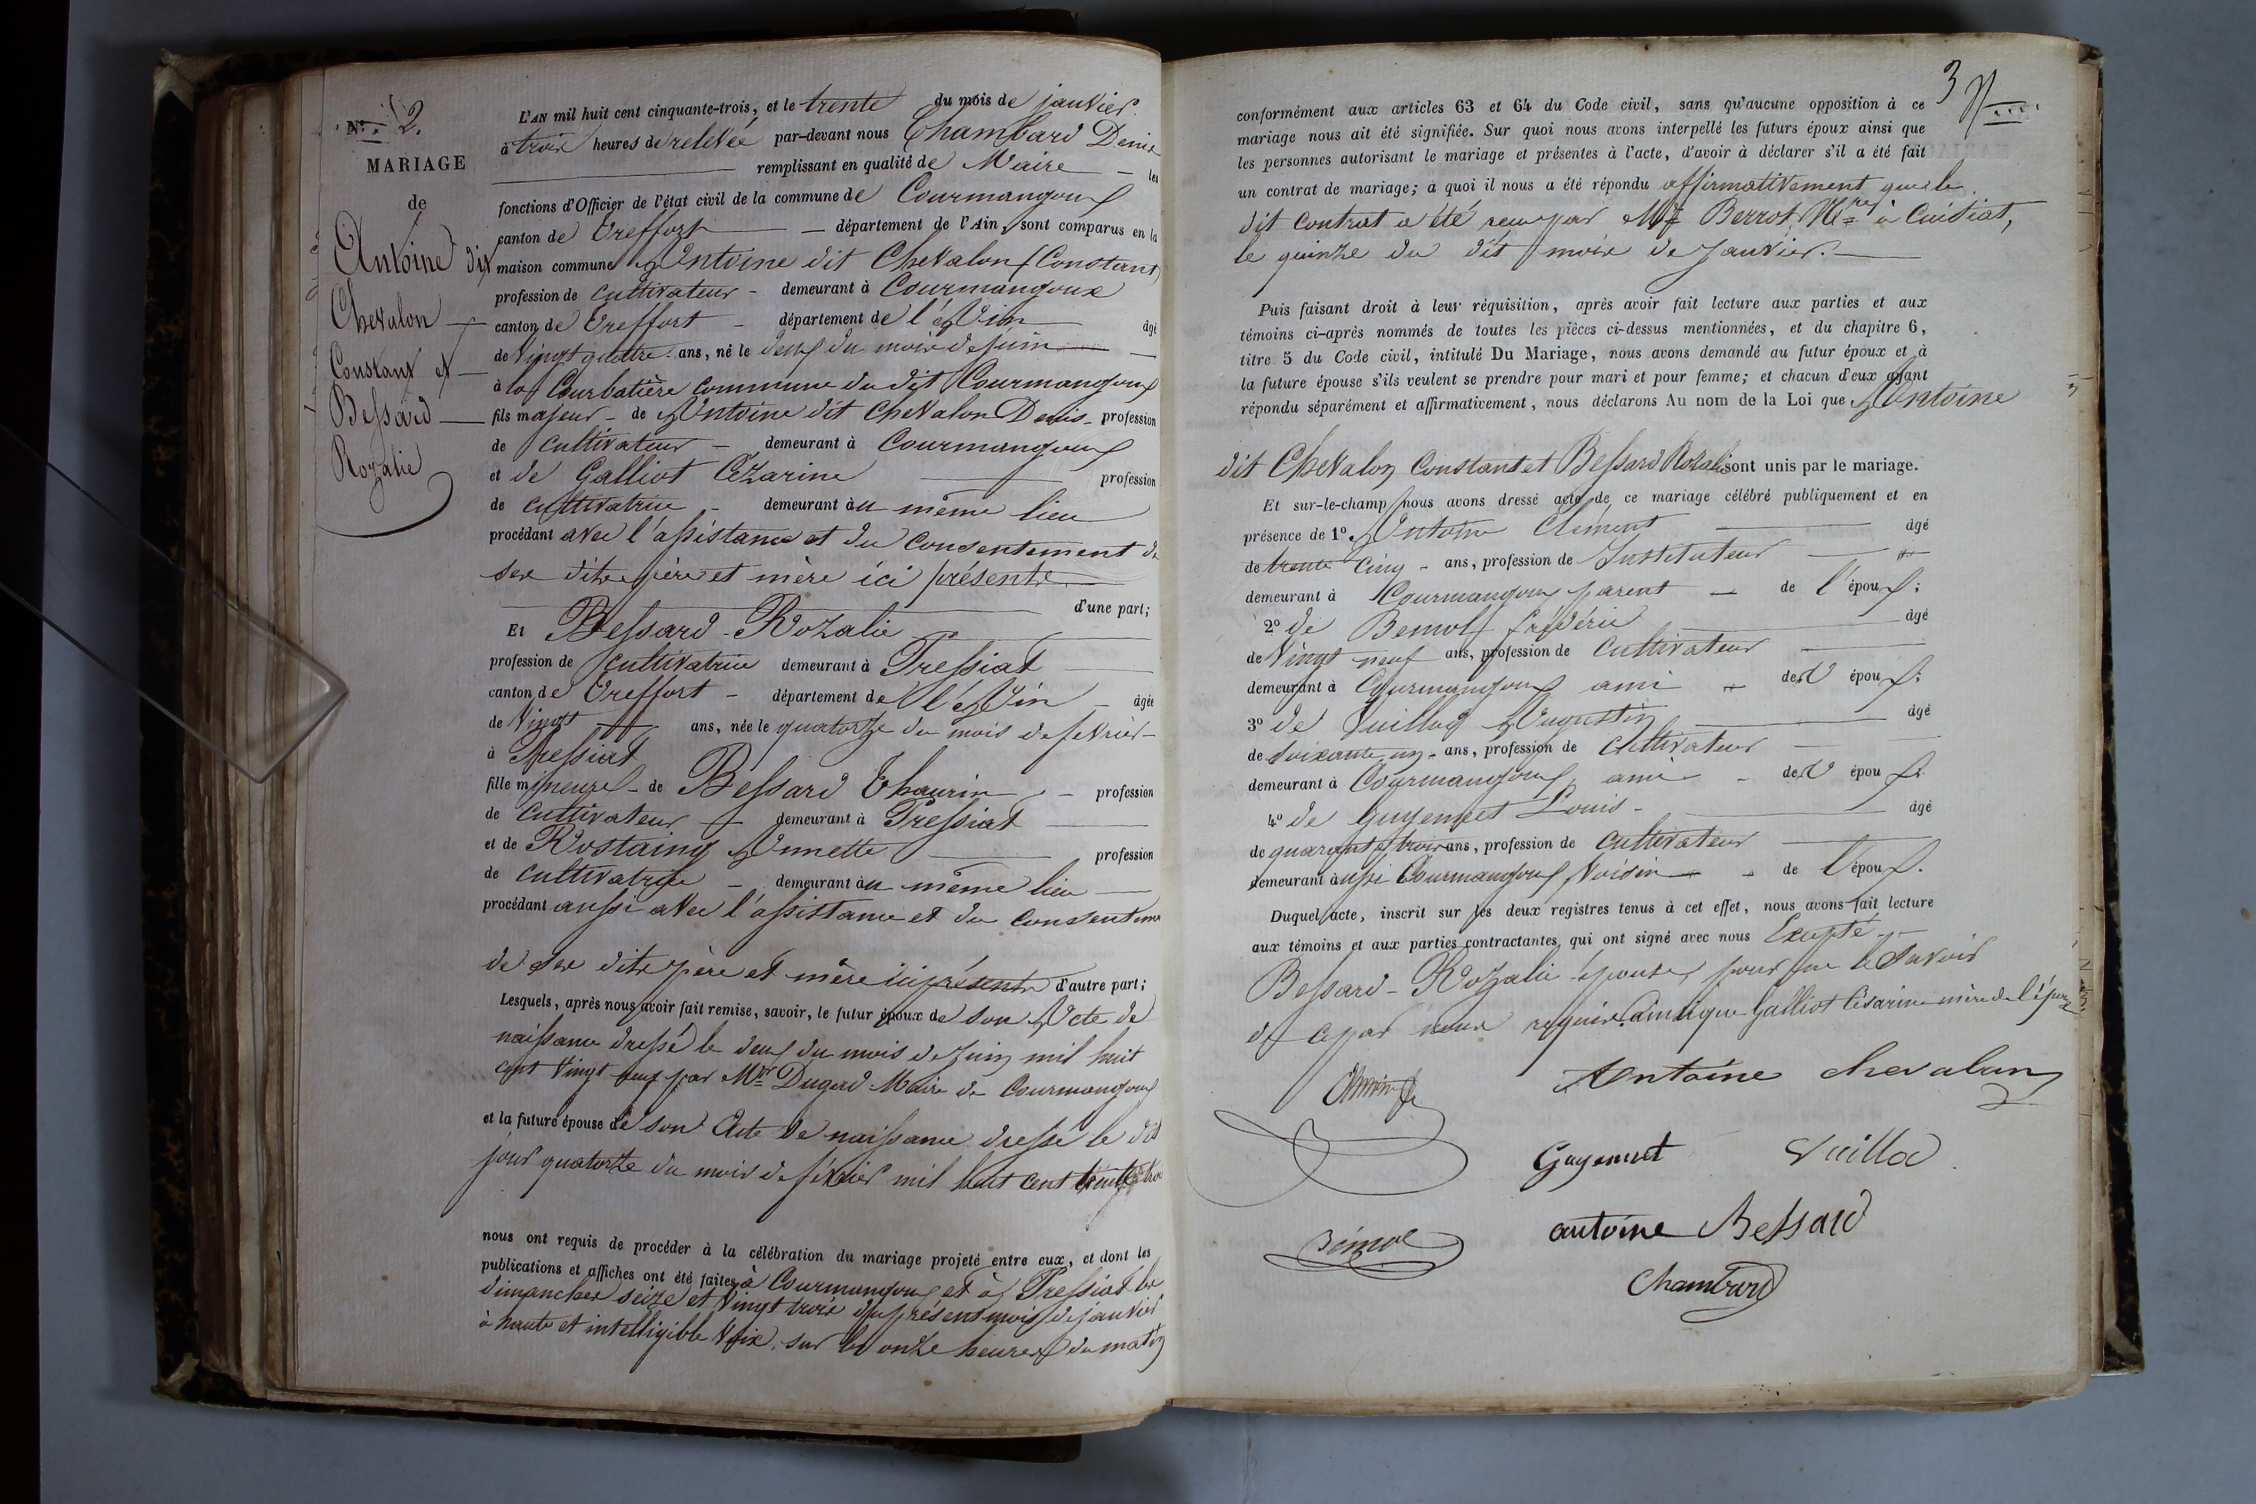 N.° 2.
MARIAGE
de
Antoine dit
Chevalon
Constant et
Bessard
Rozalie
L'AN mil huit cent cinquante-trois, et le trente du mois de janvier
à trois heures de relevée par-devant nous Chambard Denis
remplissant en qualité de Maire les
fonctions d'Officier de l'état civil de la commune de Courmangoux
canton de Treffort département de l'Ain, sont comparus en la
maison commune Antoine dit Chevalon Constant
profession de cultivateur demeurant à Courmangoux
canton de Treffort département de l'Ain âgé
de vingt quatre ans, né le deux du mois de juin
à la Courbatière commune du dit Courmangoux
fils majeur de Antoine dit Chevalon Denis profession
de cultivateur demeurant à Courmangoux
et de Galliot Cézarine profession
de cultivatrice demeurant au même lieu
procédant avec l'assistance et du consentement de
ses dits père et mère ici présents
d'une part;
Et Bessard Rozalie
profession de cultivatrice demeurant à Pressiat
canton de Treffort département de l'Ain âgée
de vingt ans, née le quatorze du mois de fevrier
à Pressiat
fille mineure de Bessard Thaurin profession
de cultivateur demeurant à Pressiat
et de Rostaing Annette profession
de cultivatrice demeurant au même lieu
procédant aussi avec l'assistance et du consentement
de ses dits père et mère ici présents d'autre part;
Lesquels, après nous avoir fait remise, savoir, le futur époux de son Acte de
naissance dressé le deux du mois de juin mil huit
cent vingt huit par Mr Dugad Maire de Courmangoux
et la future épouse de son Acte de naissance dressé le dit
jour quatorze du mois de février mil huit cent trente trois
nous ont requis de procéder à la célébration du mariage projeté entre eux, et dont les
publications et affiches ont été faites à Courmangoux et à Pressiat les
dimanches seize et vingt trois du présent mois de janvier
à haute et intelligible voix, sur les onze heures du matin
3
conformément aux articles 63 et 64 du Code civil, sans qu'aucune opposition à ce
mariage nous ait été signifiée. Sur quoi nous avons interpellé les futurs époux ainsi que
les personnes autorisant le mariage et présentes à l'acte, d'avoir à déclarer s'il a été fait
un contrat de mariage; à quoi il nous a été répondu affirmativement que le
dit contrat a été reçu par Me Berrot Nre à Cuisiat,
le quinze du dit mois de janvier.
Puis faisant droit à leur réquisition, après avoir fait lecture aux parties et aux
témoins ci-après nommés de toutes les pièces ci-dessus mentionnées, et du chapitre 6,
titre 5 du Code civil, intitulé Du Mariage, nous avons demandé au futur époux et à
la future épouse s'ils veulent se prendre pour mari et pour femme; et chacun d'eux ayant
répondu séparément et affirmativement, nous déclarons Au nom de la Loi que Antoine
dit Chevalon Constant et Bessard Rozalie sont unis par le mariage.
Et sur-le-champ nous avons dressé acte de ce mariage célébré publiquement et en
présence de 1° Antoine Clément âgé
de trente cinq ans, profession de Instituteur
demeurant à Courmangoux parent de l'époux;
2° de Bemol frédéric âgé
de vingt neuf ans, profession de cultivateur
demeurant à Courmangoux ami des époux;
3° de Vuillod Augustin âgé
de soixante un ans, profession de cultivateur
demeurant à Courmangoux, ami des époux
4° de Guyennet Louis âgé
de quarante trois ans, profession de cultivateur
demeurant aussi Courmangoux, Voisin de l'époux.
Duquel acte, inscrit sur les deux registres tenus à cet effet, nous avons fait lecture
aux témoins et aux parties contractantes, qui ont signé avec nous Excepté
Bessard Rozalie épouse, pour ne le savoir
de ce par nous requise, ainsi que Galliot Césarine mère de l'époux
Antoine chevalon
Guyennet Vuillod
Bémol antoine Bessard
Chambard